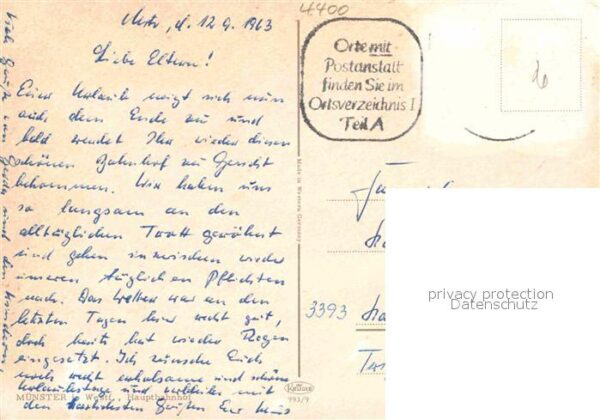 4400
Mstr, d. 12.9.1963
Liebe Eltern!
Euer Urlaub neigt sich nun
auch dem Ende zu und
bald werdet Ihr wieder diesen
schönen Bahnhof zu Gesicht
bekommen. Wir haben uns
so langsam an den
alltäglichen Trott gewöhnt
und gehen inzwischen wieder
unseren täglichen Pflichten
nach. Das Wetter war an den
letzten Tagen hier recht gut,
doch heute hat wieder Regen
eingesetzt. Ich wünsche Euch
noch recht erholsame und schöne
Urlaubstage und verbleibe mit
den herzlichsten Grüßen Euer
MÜNSTER i. Westf., Hauptbahnhof
Viele Grüße von und den Kindern
Orte mit
Postanstalt
finden Sie im
Ortsverzeichnis I
Teil A
Made in Western Germany
KRÜGER
993/9
3393
privacy protection
Datenschutz